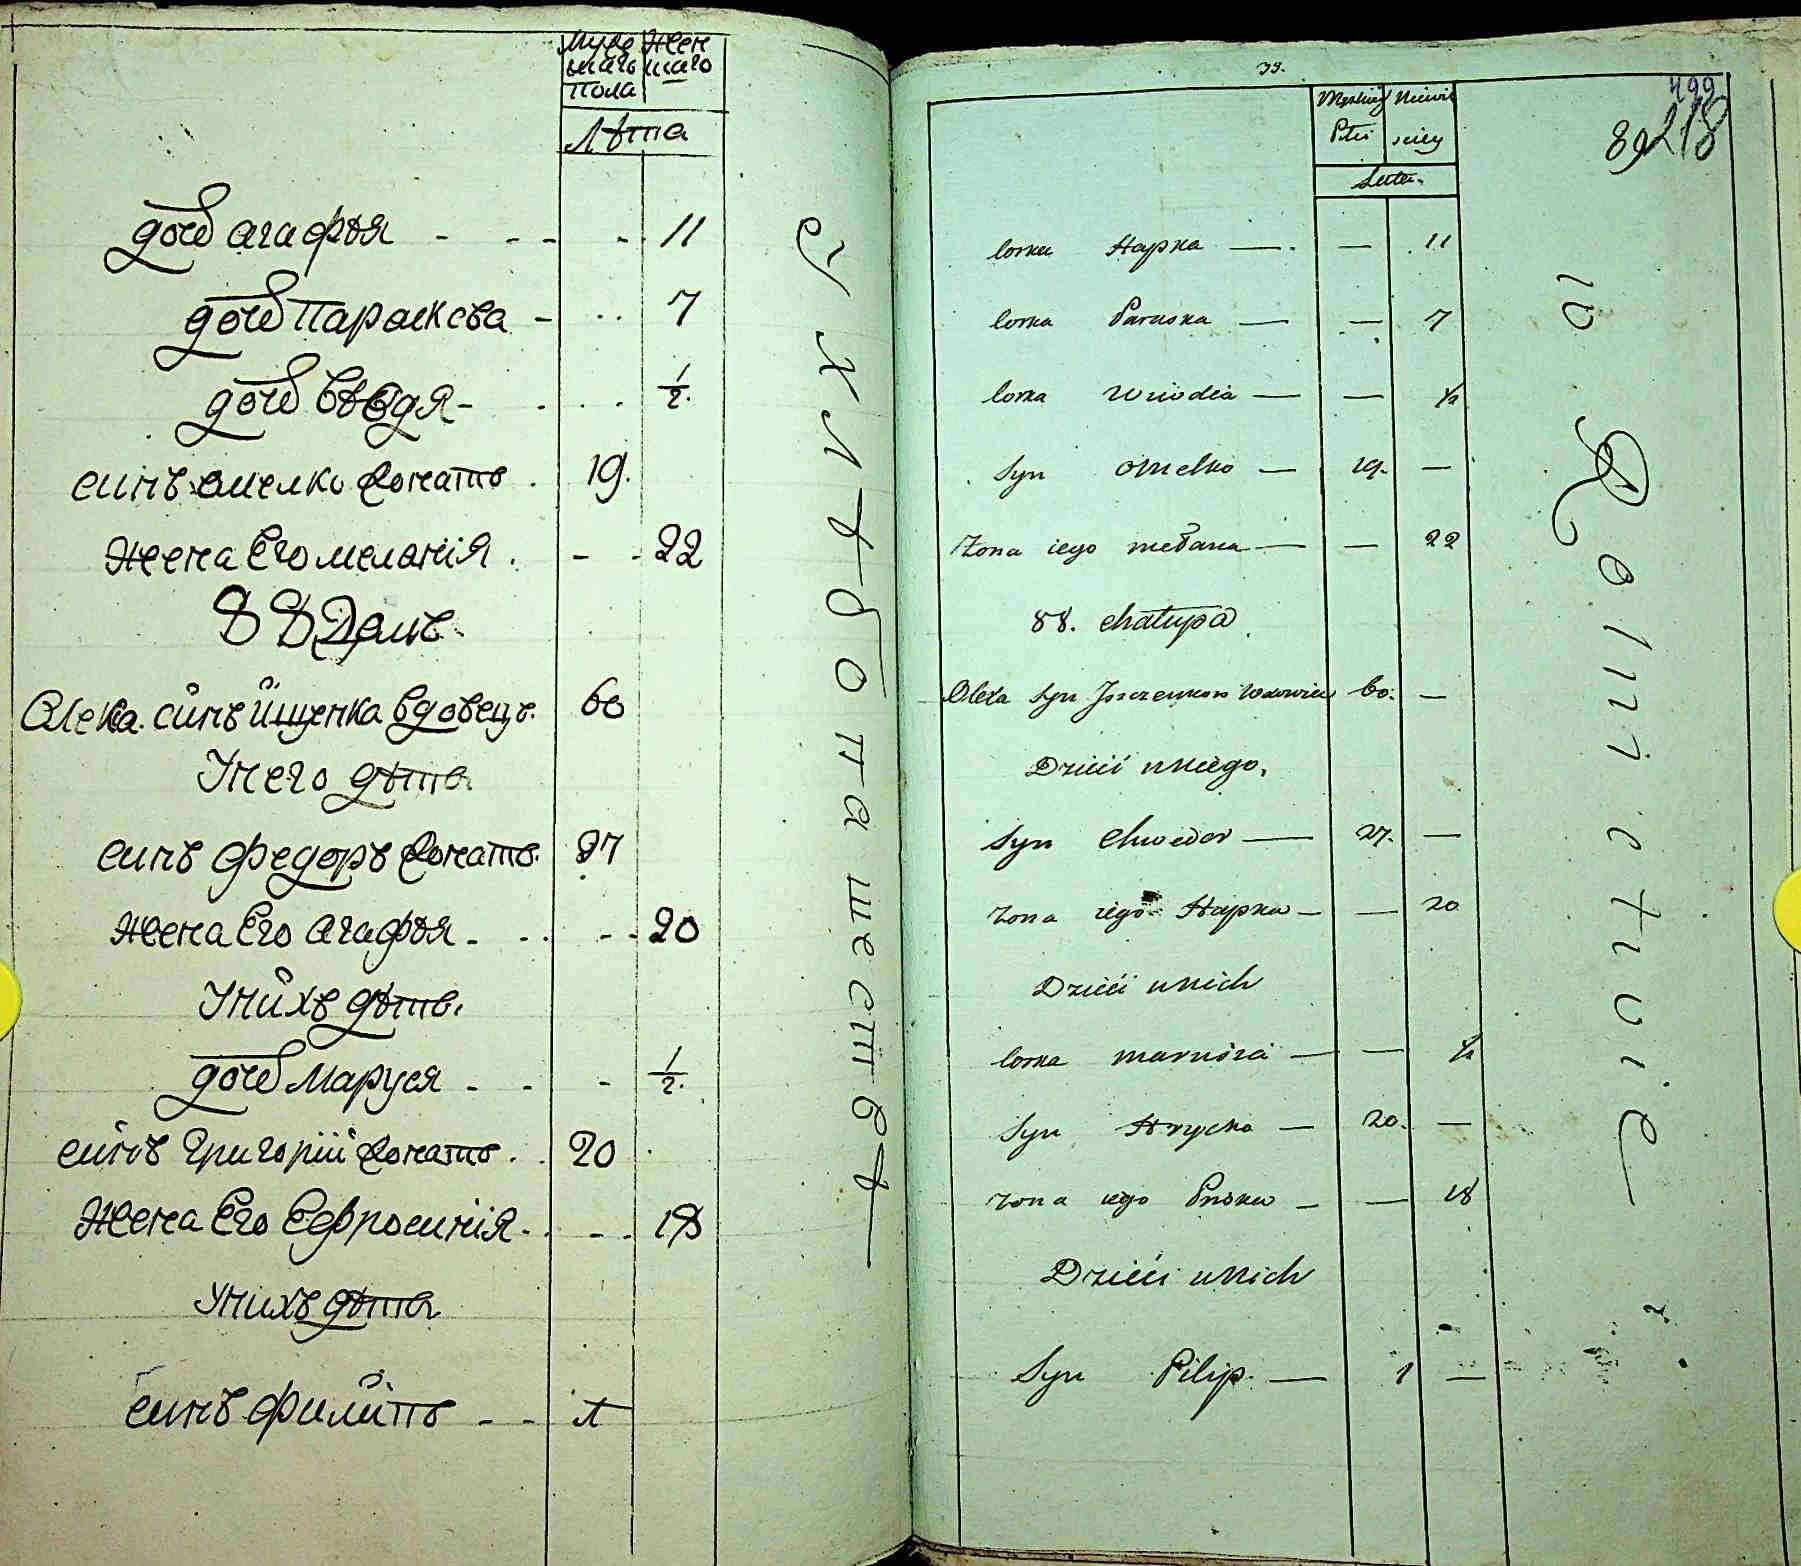 Мужескаго пола Женскаго
Лѣта
дочь агафѣя - - - - 11
дочь Параскева - .. 7
дочь Ѣвъдя - . . . 1/2.
синъ омелко женатъ . 19.
жена Его меланія . - - 22
88 Домъ
Олекса синъ Йщенка вдовецъ. 60
У него дѣти
синъ федоръ женатъ. 27
жена Его агафѣя - . . - - 20
У нихъ дѣти.
дочь Маруся - - - 1/2.
синъ Григорій женатъ . . 20
жена Его Еѳвросинія - . - - 18
У нихъ дѣти
синъ филипъ - - 1
У хлѣбопашествѣ
39.
499
218
89
Męskiey Płci Niewiesciey
Lata.
Corka Hapka — . — 11
Corka Paraska — — 7
Corka Wiivdia — — 1/2
Syn Omelko — 19. —
Żona iego Mełana — — 22
88. Chałupa
Olexa Syn Jszczenkow Wdowiec 60. —
Dzieci u niego.
Syn Chwedor — 27. —
Żona iego Hapka — — 20
Dzieci u nich
Corka Marusia — — 1/2
Syn Hrycko — 20. —
Żona iego Pryśka — — 18
Dzieci u nich
Syn Pilip — 1 —
w Rolnictwie